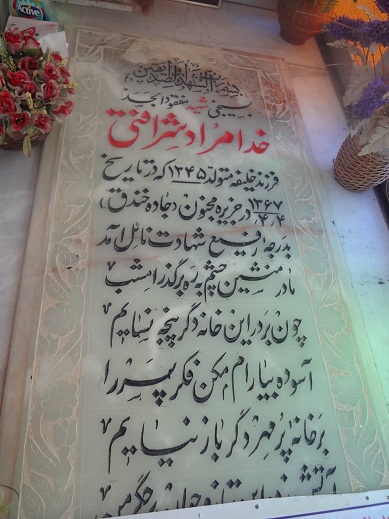 Active
بسیجی شهید مفقود الجسد
خدامراد شرافتی
فرزند خلیفه متولد ۱۳۴۵ که در تاریخ
۱۳۶۷/۴/۴ در جزیره مجنون «جاده خندق»
بدرجه رفیع شهادت نائل آمد
مادر منشین چشم به ره برگذر امشب
چون بر در این خانه دگر پنجه نسایم
آسوده بیارام و مکن فکر پسر را
بر خانه پر مهر دگر باز نیایم